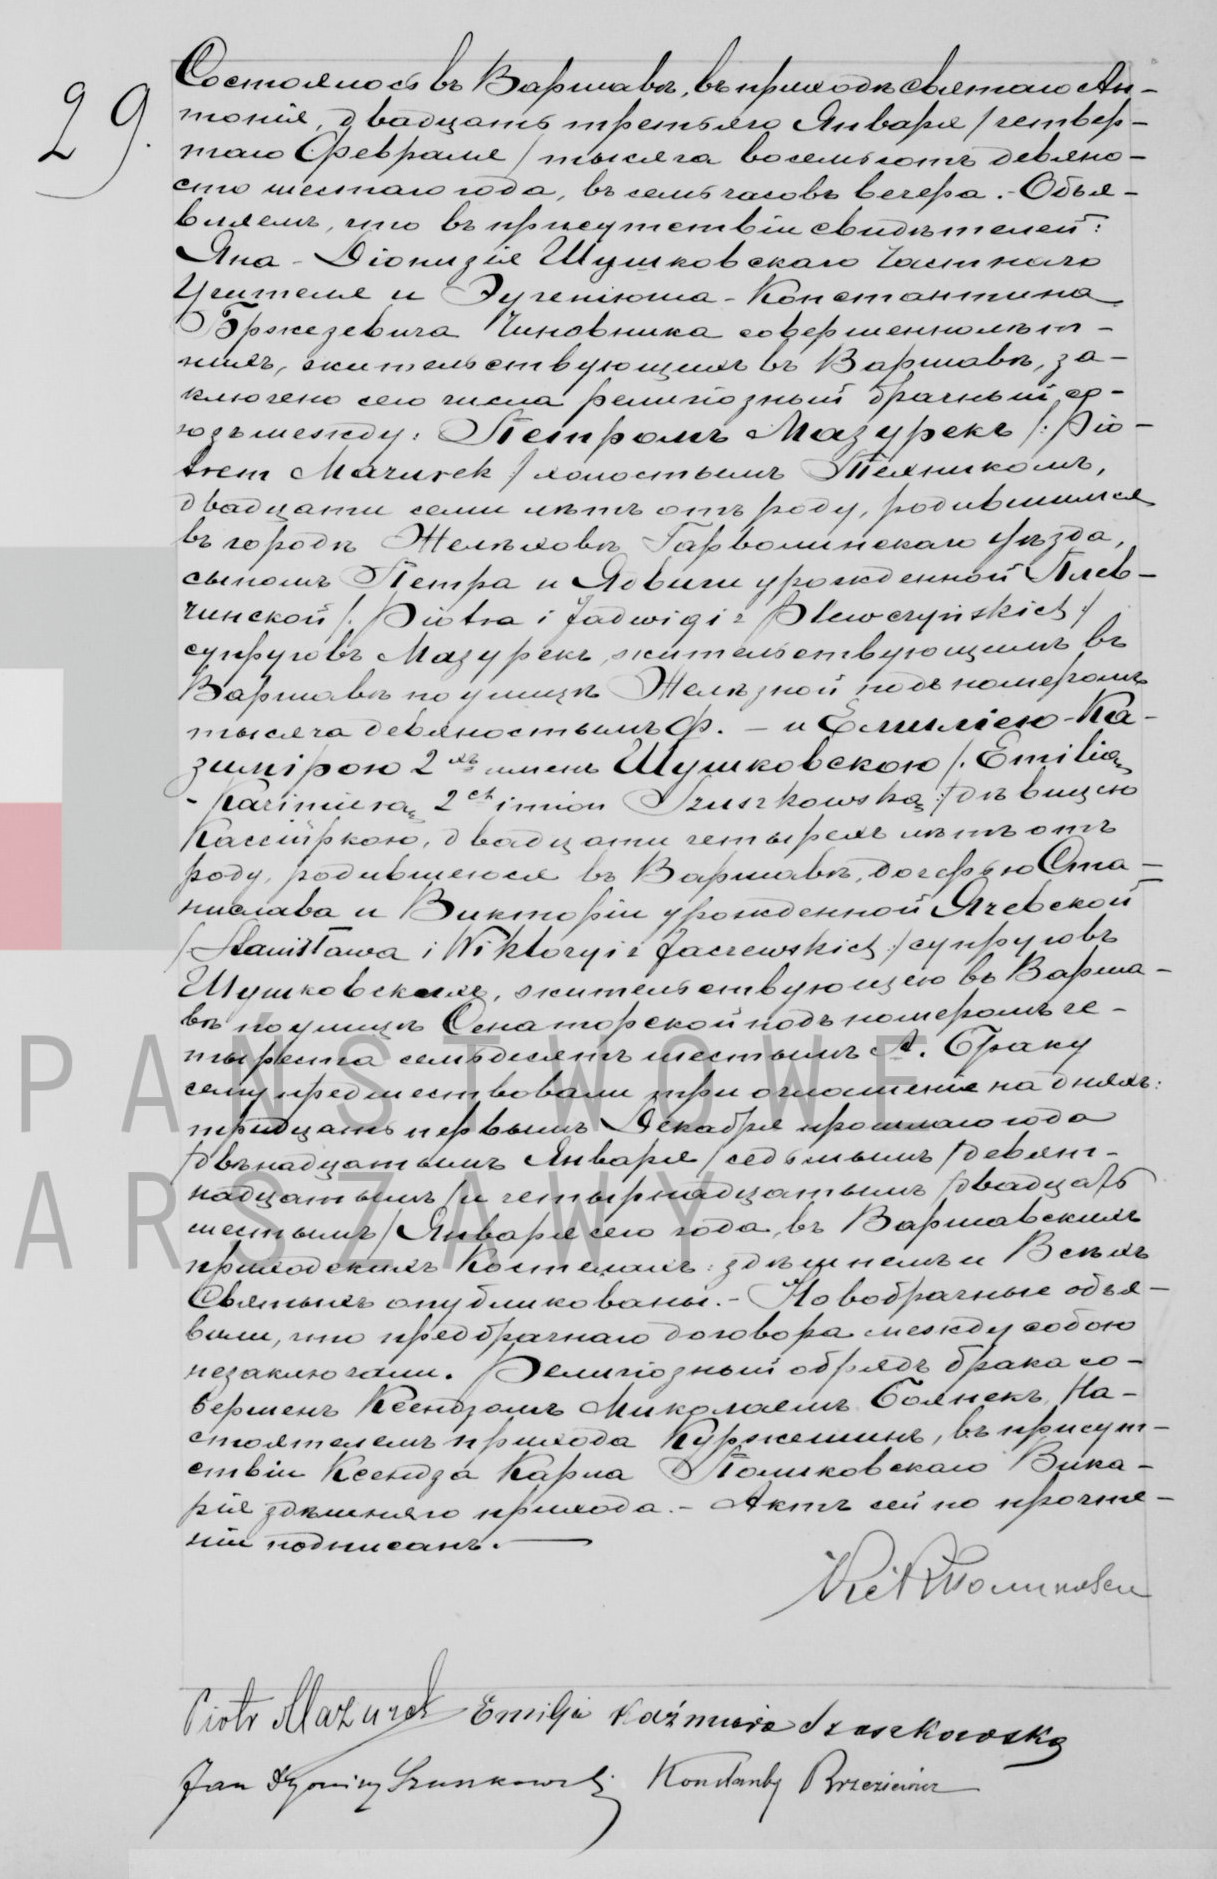 29.
Состоялось въ Варшавѣ, въ приходѣ святаго Ан-
тонія, двадцать третьяго Января /четвер-
таго Февраля/ тысяча восемьсотъ девяно-
сто шестаго года, въ семь часовъ вечера. - Объя-
вляемъ, что въ присутствіи свидѣтелей:
Яна - Діонизія Шушковскаго Частнаго
Учителя и Эугеніюша - Константина
Бржезевича Чиновника совершеннолѣт-
нихъ, жительствующихъ въ Варшавѣ, за-
ключено сего числа религіозный брачный со-
юзъ между: Петромъ Мазурекъ /: Pio-
trem Mazurek :/ холостымъ Техникомъ,
двадцати семи лѣтъ отъ роду, родившимся
въ городѣ Желѣховѣ Гарволинскаго уѣзда,
сыномъ Петра и Ядвиги урожденной Плев-
чинской /: Piotra i Jadwigi z Plewczyńskich :/
супруговъ Мазурекъ, жительствующимъ въ
Варшавѣ по улицѣ Желѣзной подъ номеромъ
тысяча девяностымъ Ф. - и Емиліею - Ка-
зимірою 2хъ именъ Шушковскою /: Emilią
- Kazimierą 2ch imion Szuszkowską :/ дѣвицею
Кассіиркою, двадцати четырехъ лѣтъ отъ
роду, родившеюся въ Варшавѣ, дочерью Ста-
нислава и Викторіи урожденной Ячевской
/: Stanisława i Wiktoryi z Jaczewskich :/ супруговъ
Шушковскихъ, жительствующею въ Варша-
вѣ по улицѣ Сенаторской подъ номеромъ че-
тыреста семьдесятъ шестымъ А. Браку
сему предшествовали три оглашенія на дняхъ:
тридцать первымъ Декабря прошлаго года
/двѣнадцатымъ Января/ седьмымъ /девят-
надцатымъ/ и четырнадцатымъ /двадцать
шестымъ/ Января сего года, въ Варшавскихъ
приходскихъ Костелахъ: здѣшнемъ и Всѣхъ
Святыхъ опубликованы. - Новобрачные объя-
вили, что предбрачнаго договора между собою
незаключали. Религіозный обрядъ брака со-
вершенъ Ксендзомъ Миколаемъ Боянекъ На-
стоятелемъ прихода Куржешинъ, въ присут-
ствіи Ксендза Карла Полковскаго Вика-
рія здѣшняго прихода. - Актъ сей по прочте-
ніи подписанъ. -
Piotr Mazurek Emilja Kaźmiera Szuszkowska
Jan Dyonizy Szuszkowski Konstanty Brzeziewicz
PAŃSTWOWE
ARSZAWY